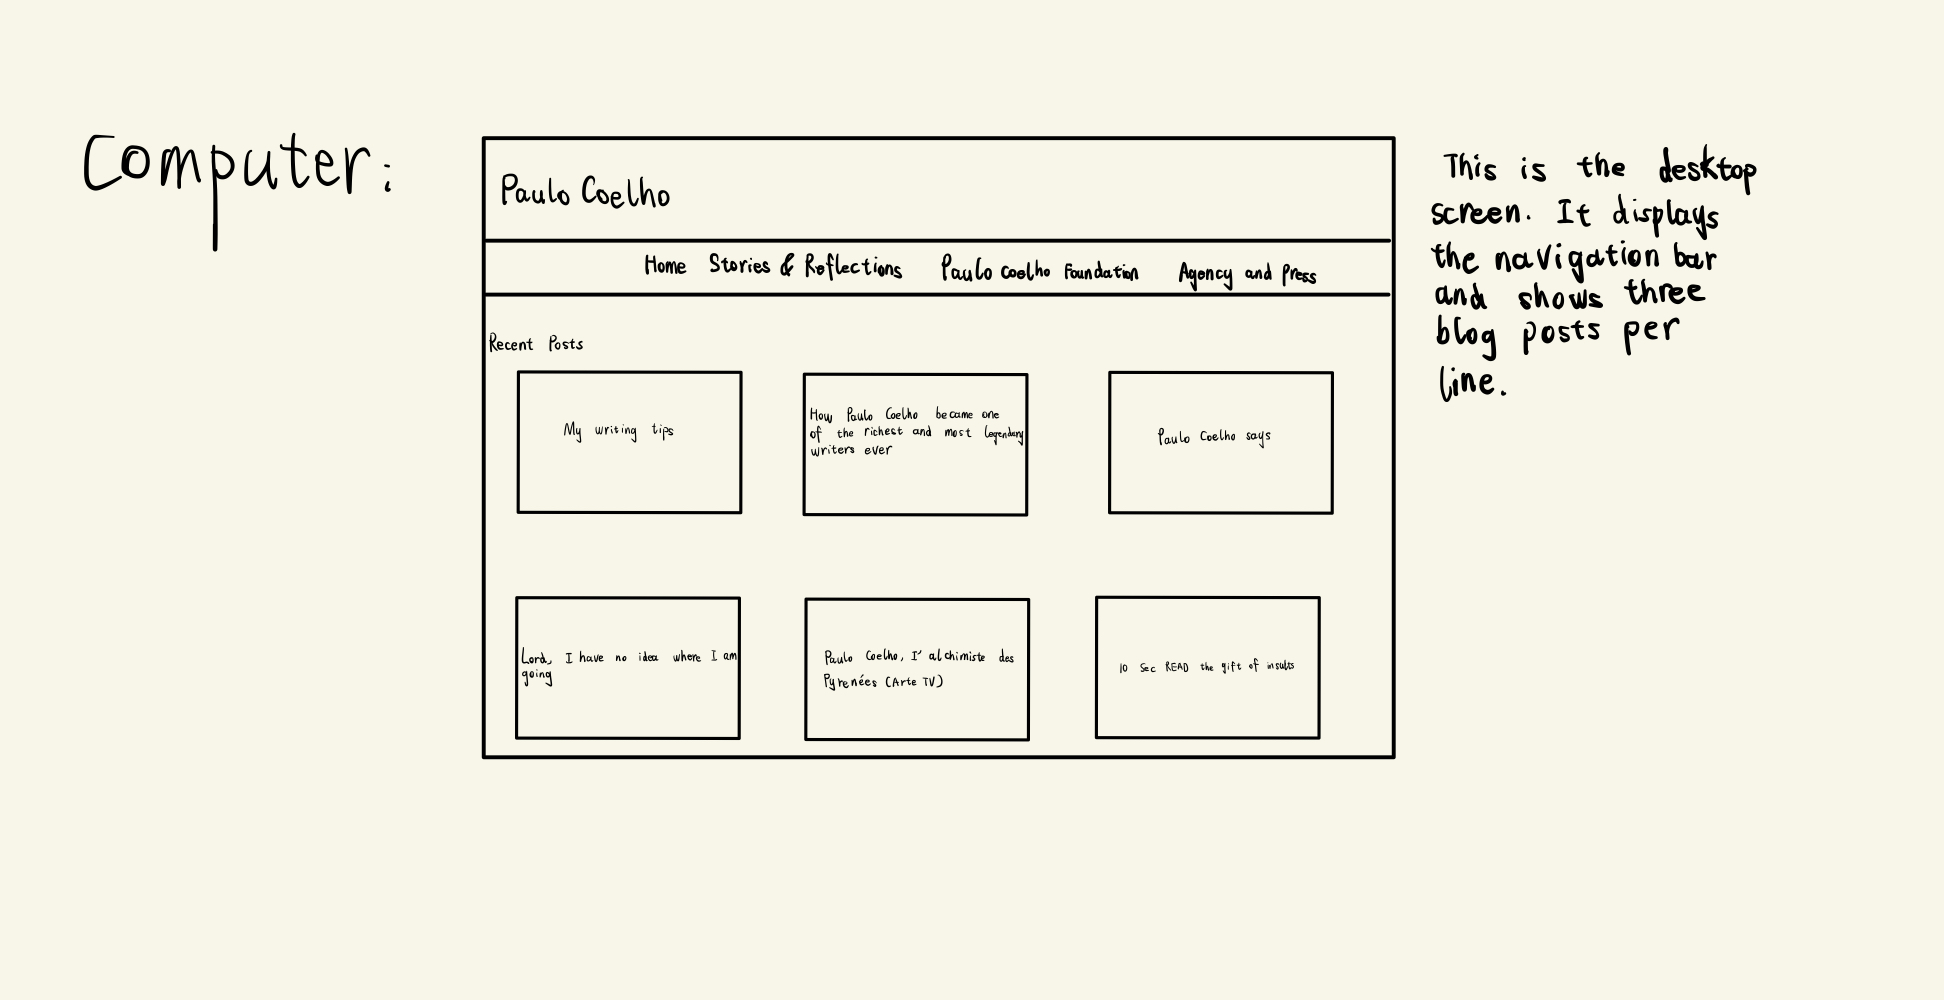 Computer:
Paulo Coelho
Home Stories & Reflections Paulo Coelho Foundation Agency and Press
Recent Posts
My writing tips
How Paulo Coelho became one
of the richest and most legendary
writers ever
Paulo Coelho says
Lord, I have no idea where I am
going
Paulo Coelho, I' alchimiste des
Pyrenées (Arte TV)
10 Sec READ the gift of insults
This is the desktop
screen. It displays
the navigation bar
and shows three
blog posts per
line.